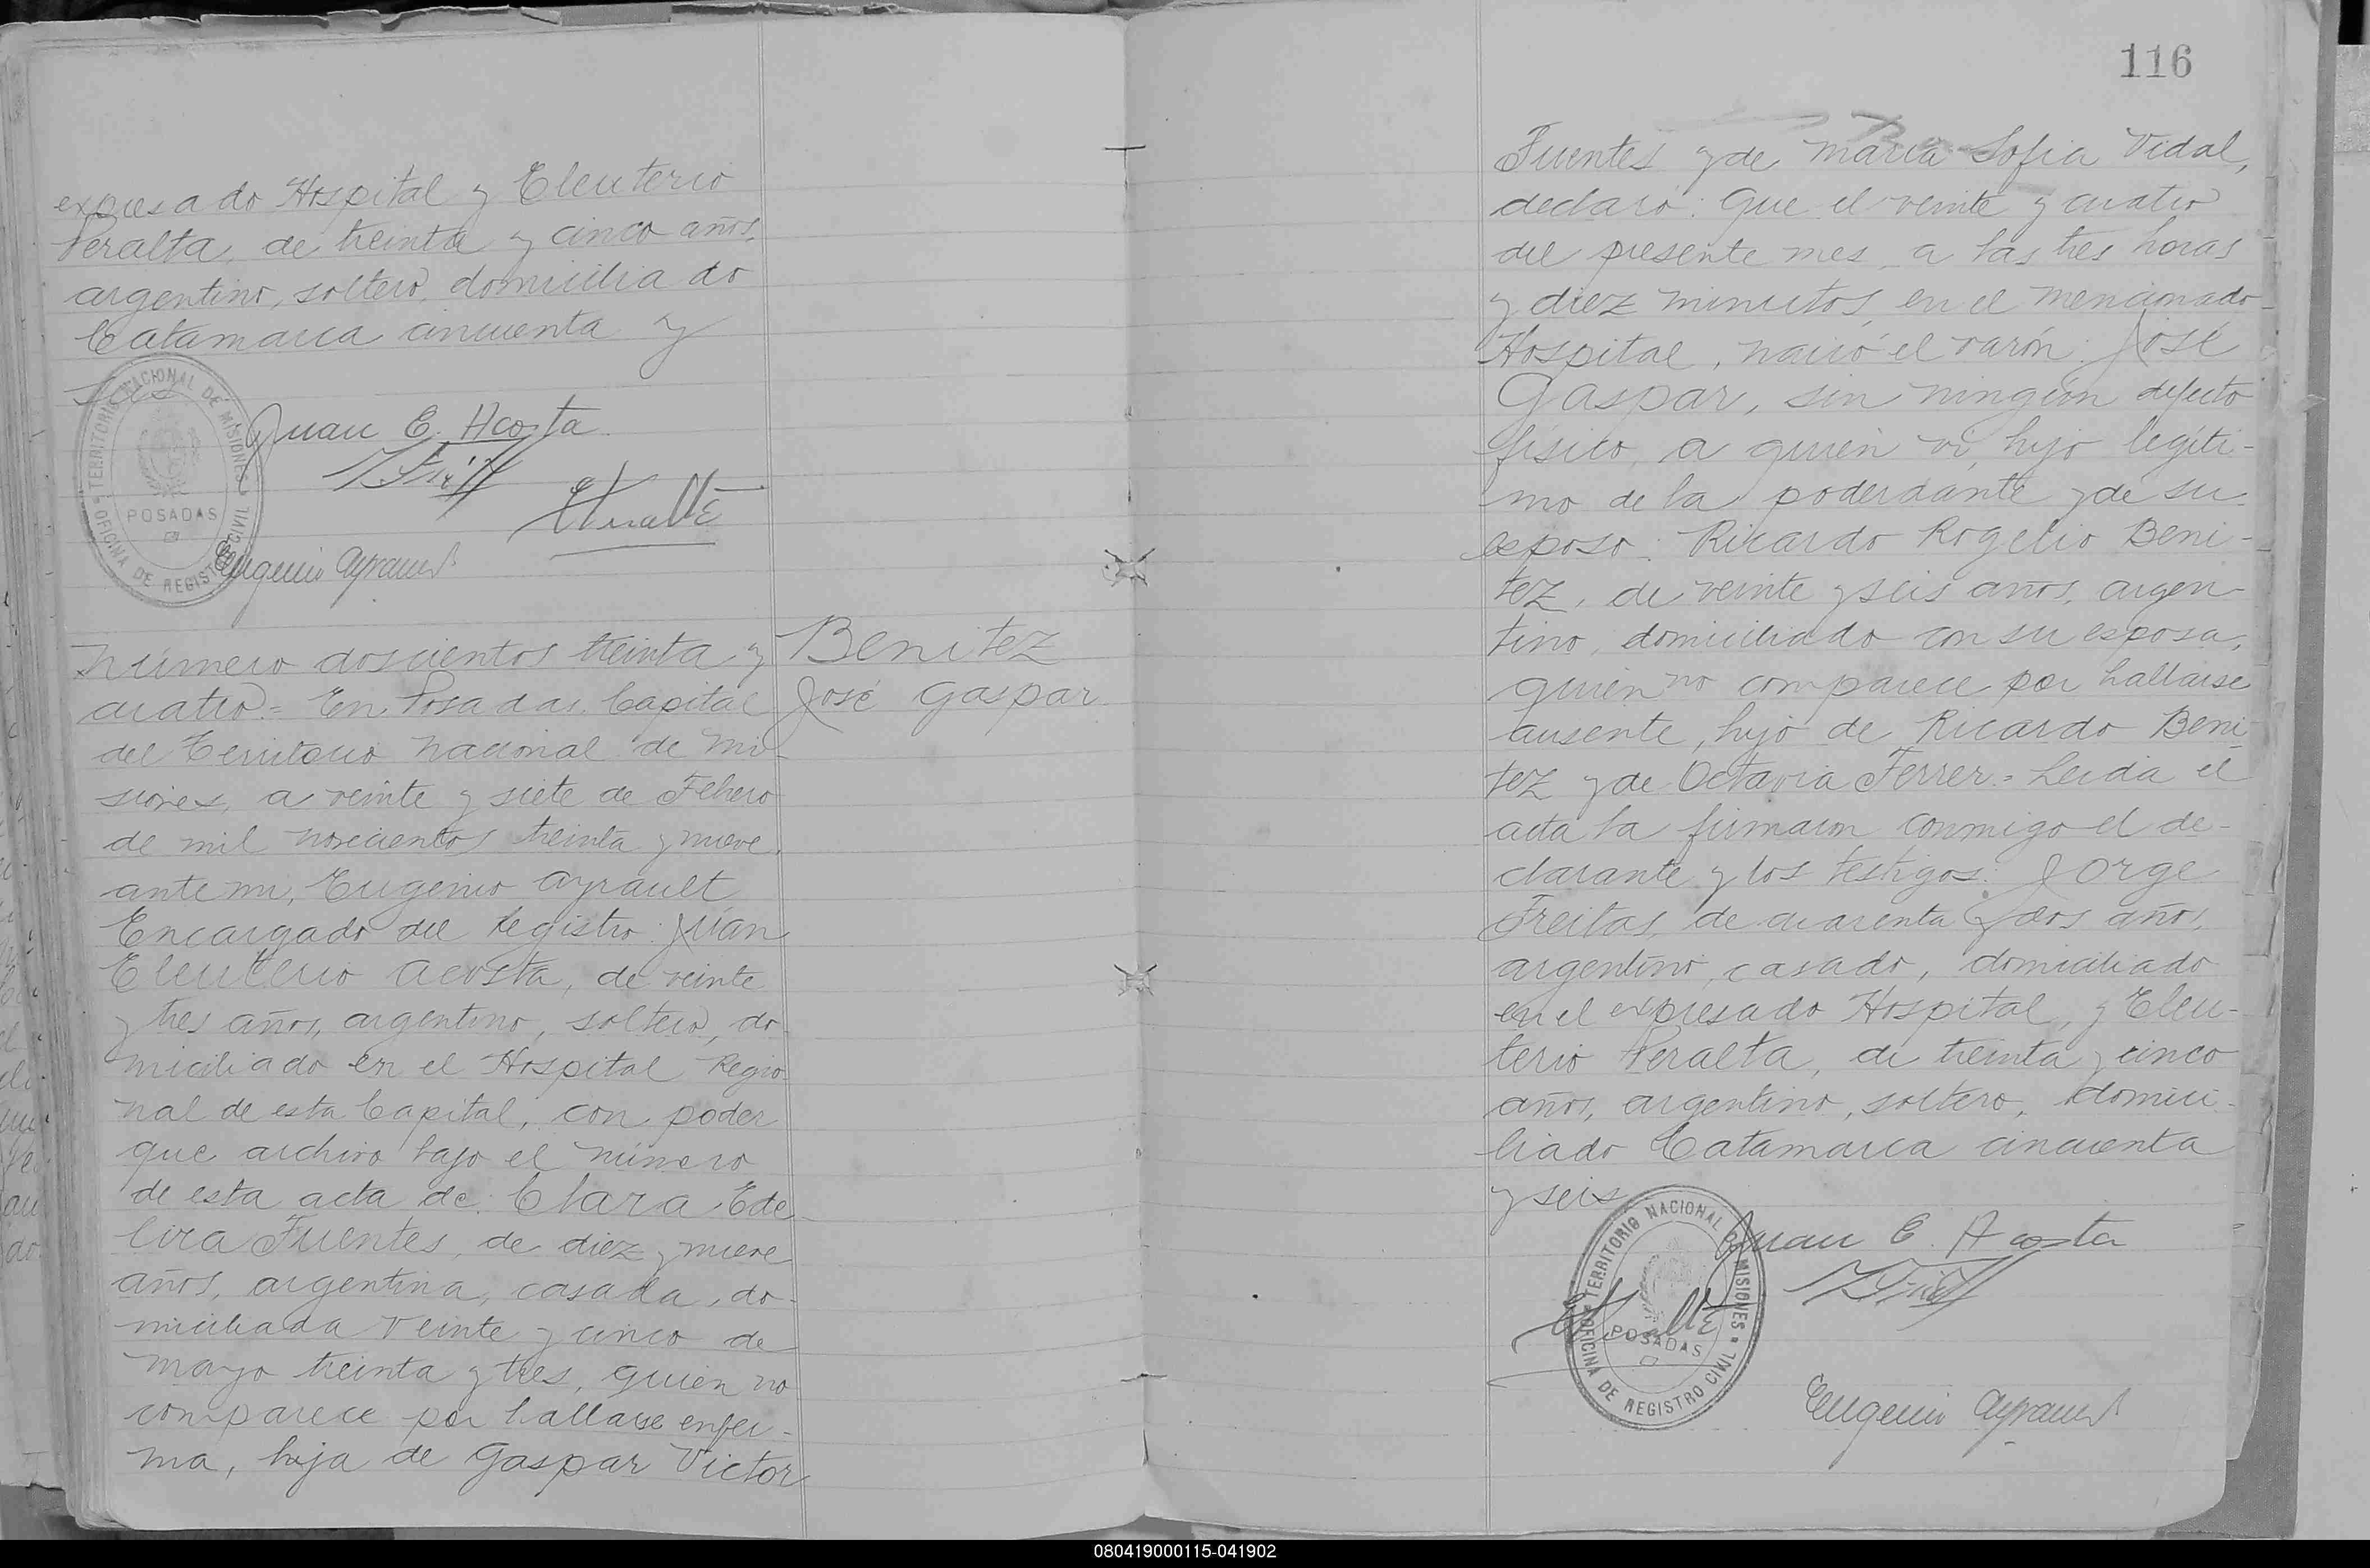 expresado Hospital y Eleuterio
Peralta, de treinta y cinco años,
argentino, soltero, domiciliado
Catamarca cincuenta y
seis
TERRITORIO NACIONAL DE MISIONES
OFICINA DE REGISTRO CIVIL
POSADAS
Juan E. Acosta
Eugenio Ayrault
Número doscientos treinta y
cuatro = En Posadas, Capital
del Territorio Nacional de Mi-
siones, a veinte y siete de Febrero
de mil novecientos treinta y nueve,
ante mi, Eugenio Ayrault
Encargado del Registro: Juan
Eleuterio Acosta, de veinte
y tres años, argentino, soltero, do-
miciliado en el Hospital Regio-
nal de esta Capital, con poder
que archivo bajo el número
de esta acta de: Clara Ede-
lira Fuentes, de diez y nueve
años, argentina, casada, do-
miciliada Veinte y cinco de
Mayo treinta y tres, quien no
comparece por hallarse enfer-
ma, hija de Gaspar Victor
Benitez
José Gaspar
116
Fuentes y de Maria Sofia Vidal,
declaró: Que el veinte y cuatro
del presente mes, a las tres horas
y diez minutos, en el mencionado
Hospital, nació el varón: José
Gaspar, sin ningún defecto
físico, a quien vi, hijo legíti-
mo de la poderdante y de su
esposo: Ricardo Rogelio Beni-
tez, de veinte y seis años, argen-
tino, domiciliado con su esposa,
quien no comparece por hallarse
ausente, hijo de Ricardo Beni-
tez y de Octavia Ferrer = Leida el
acta la firmaron conmigo el de-
clarante y los testigos: Jorge
Freitas, de cuarenta y dos años,
argentino, casado, domiciliado
en el expresado Hospital, y Eleu-
terio Peralta, de treinta y cinco
años, argentino, soltero, domici-
liado Catamarca cincuenta
y seis
TERRITORIO NACIONAL DE MISIONES
OFICINA DE REGISTRO CIVIL
POSADAS
Juan E. Acosta
Eugenio Ayrault
080419000115-041902